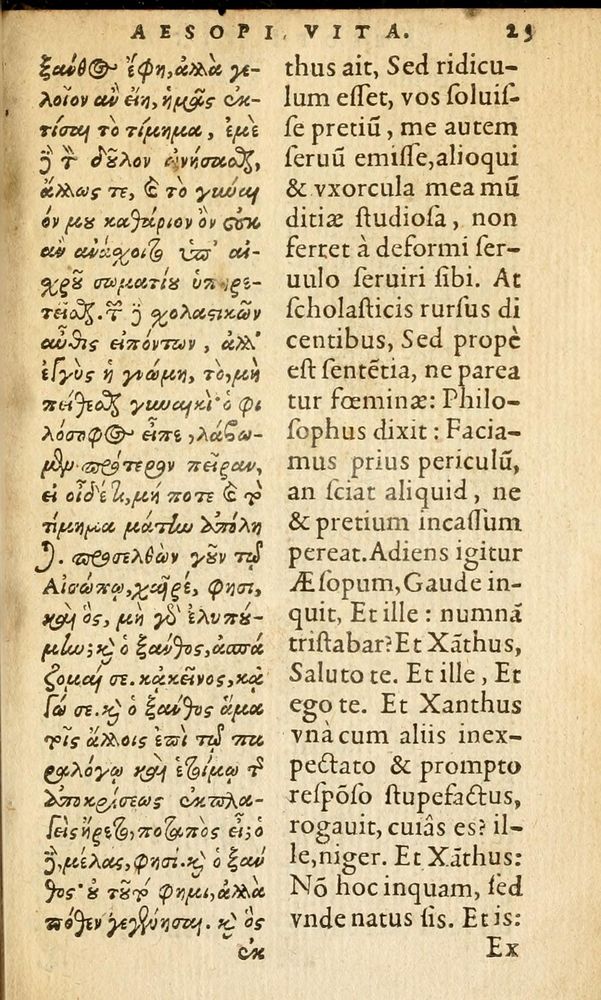 AESOPI VITA. 25
ξανθος ἔφη, ἀλλὰ γε-
λοῖον ἂν εἴη, ἡμᾶς ἐκ-
τίσαι τὸ τίμημα, ἐμὲ
δὲ τὸν δοῦλον ὠνήσασθαι,
ἄλλως τε, καὶ τὸ γυναι
όν μου καθάριον ὂν οὐκ
ἂν ἀνάχοιτο ὑπ' αἰ-
χροῦ σωματίου ὑπηρε-
τεῖσθαι. τῶν δὲ σχολαστικῶν
αὖθις εἰπόντων, ἀλλ'
ἐγγὺς ἡ γνώμη, τὸ, μὴ
πείθεσθαι γυναικί· ὁ φι
λόσοφος εἶπε, λάβω-
μεν πρότερον πεῖραν,
εἰ οἶδέ τι, μή ποτε καὶ τὸ
τίμημα μάτην ἀπόλη
ται. προσελθὼν γοῦν τῷ
Αἰσώπῳ, χαῖρέ, φησι,
καὶ ὃς, μὴ γὰρ ἐλυπού-
μην; καὶ ὁ ξάνθος, ἀσπά
ζομαί σε. κἀκεῖνος, κἀ
γώ σε. καὶ ὁ ξάνθος ἅμα
τοῖς ἄλλοις ἐπὶ τῷ πα
ραλόγῳ καὶ ἑτοίμῳ τῆς
ἀποκρίσεως ἐκπλα-
γεὶς ἤρετο, ποταπὸς εἶ; ὁ
δὲ, μέλας, φησί. καὶ ὁ ξάν
θος· οὐ τοῦτό φημι, ἀλλὰ
πόθεν γεγέννησαι. καὶ ὃς
ἐκ
thus ait, Sed ridicu-
lum eſſet, vos ſoluiſ-
ſe pretiũ, me autem
ſeruũ emiſſe, alioqui
& vxorcula mea mũ
ditiæ ſtudioſa, non
ferret à deformi ſer-
uulo ſeruiri ſibi. At
ſcholaſticis rurſus di
centibus, Sed propè
eſt ſentẽtia, ne parea
tur fœminæ: Philo-
ſophus dixit: Facia-
mus prius periculũ,
an ſciat aliquid, ne
& pretium incaſſum
pereat. Adiens igitur
Æſopum, Gaude in-
quit, Et ille: numnã
triſtabar? Et Xãthus,
Saluto te. Et ille, Et
ego te. Et Xanthus
vnà cum aliis inex-
pectato & prompto
reſpõſo ſtupefactus,
rogauit, cuiâs es? il-
le, niger. Et Xãthus:
Nõ hoc inquam, ſed
vnde natus ſis. Et is:
Ex